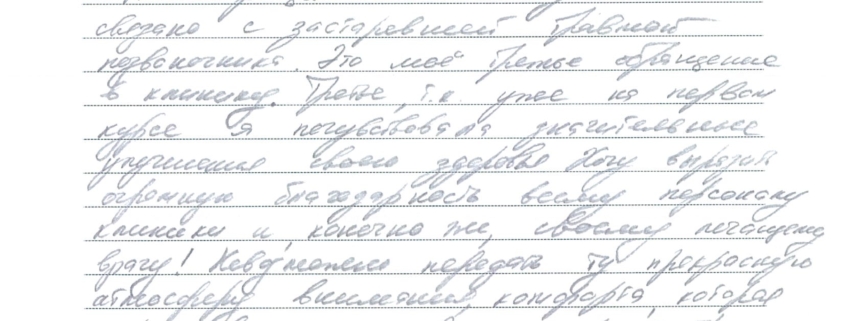 связано с застаревшей травмой
позвоночника. Это моё третье обращение
в клинику. Третье, т.к. уже на первом
курсе я почувствовала значительные
улучшения своего здоровья Хочу выразить
огромную благодарность всему персоналу
клиники и конечно же, своему лечащему
врачу! Невозможно передать ту прекрасную
атмосферу внимания, комфорта, которая